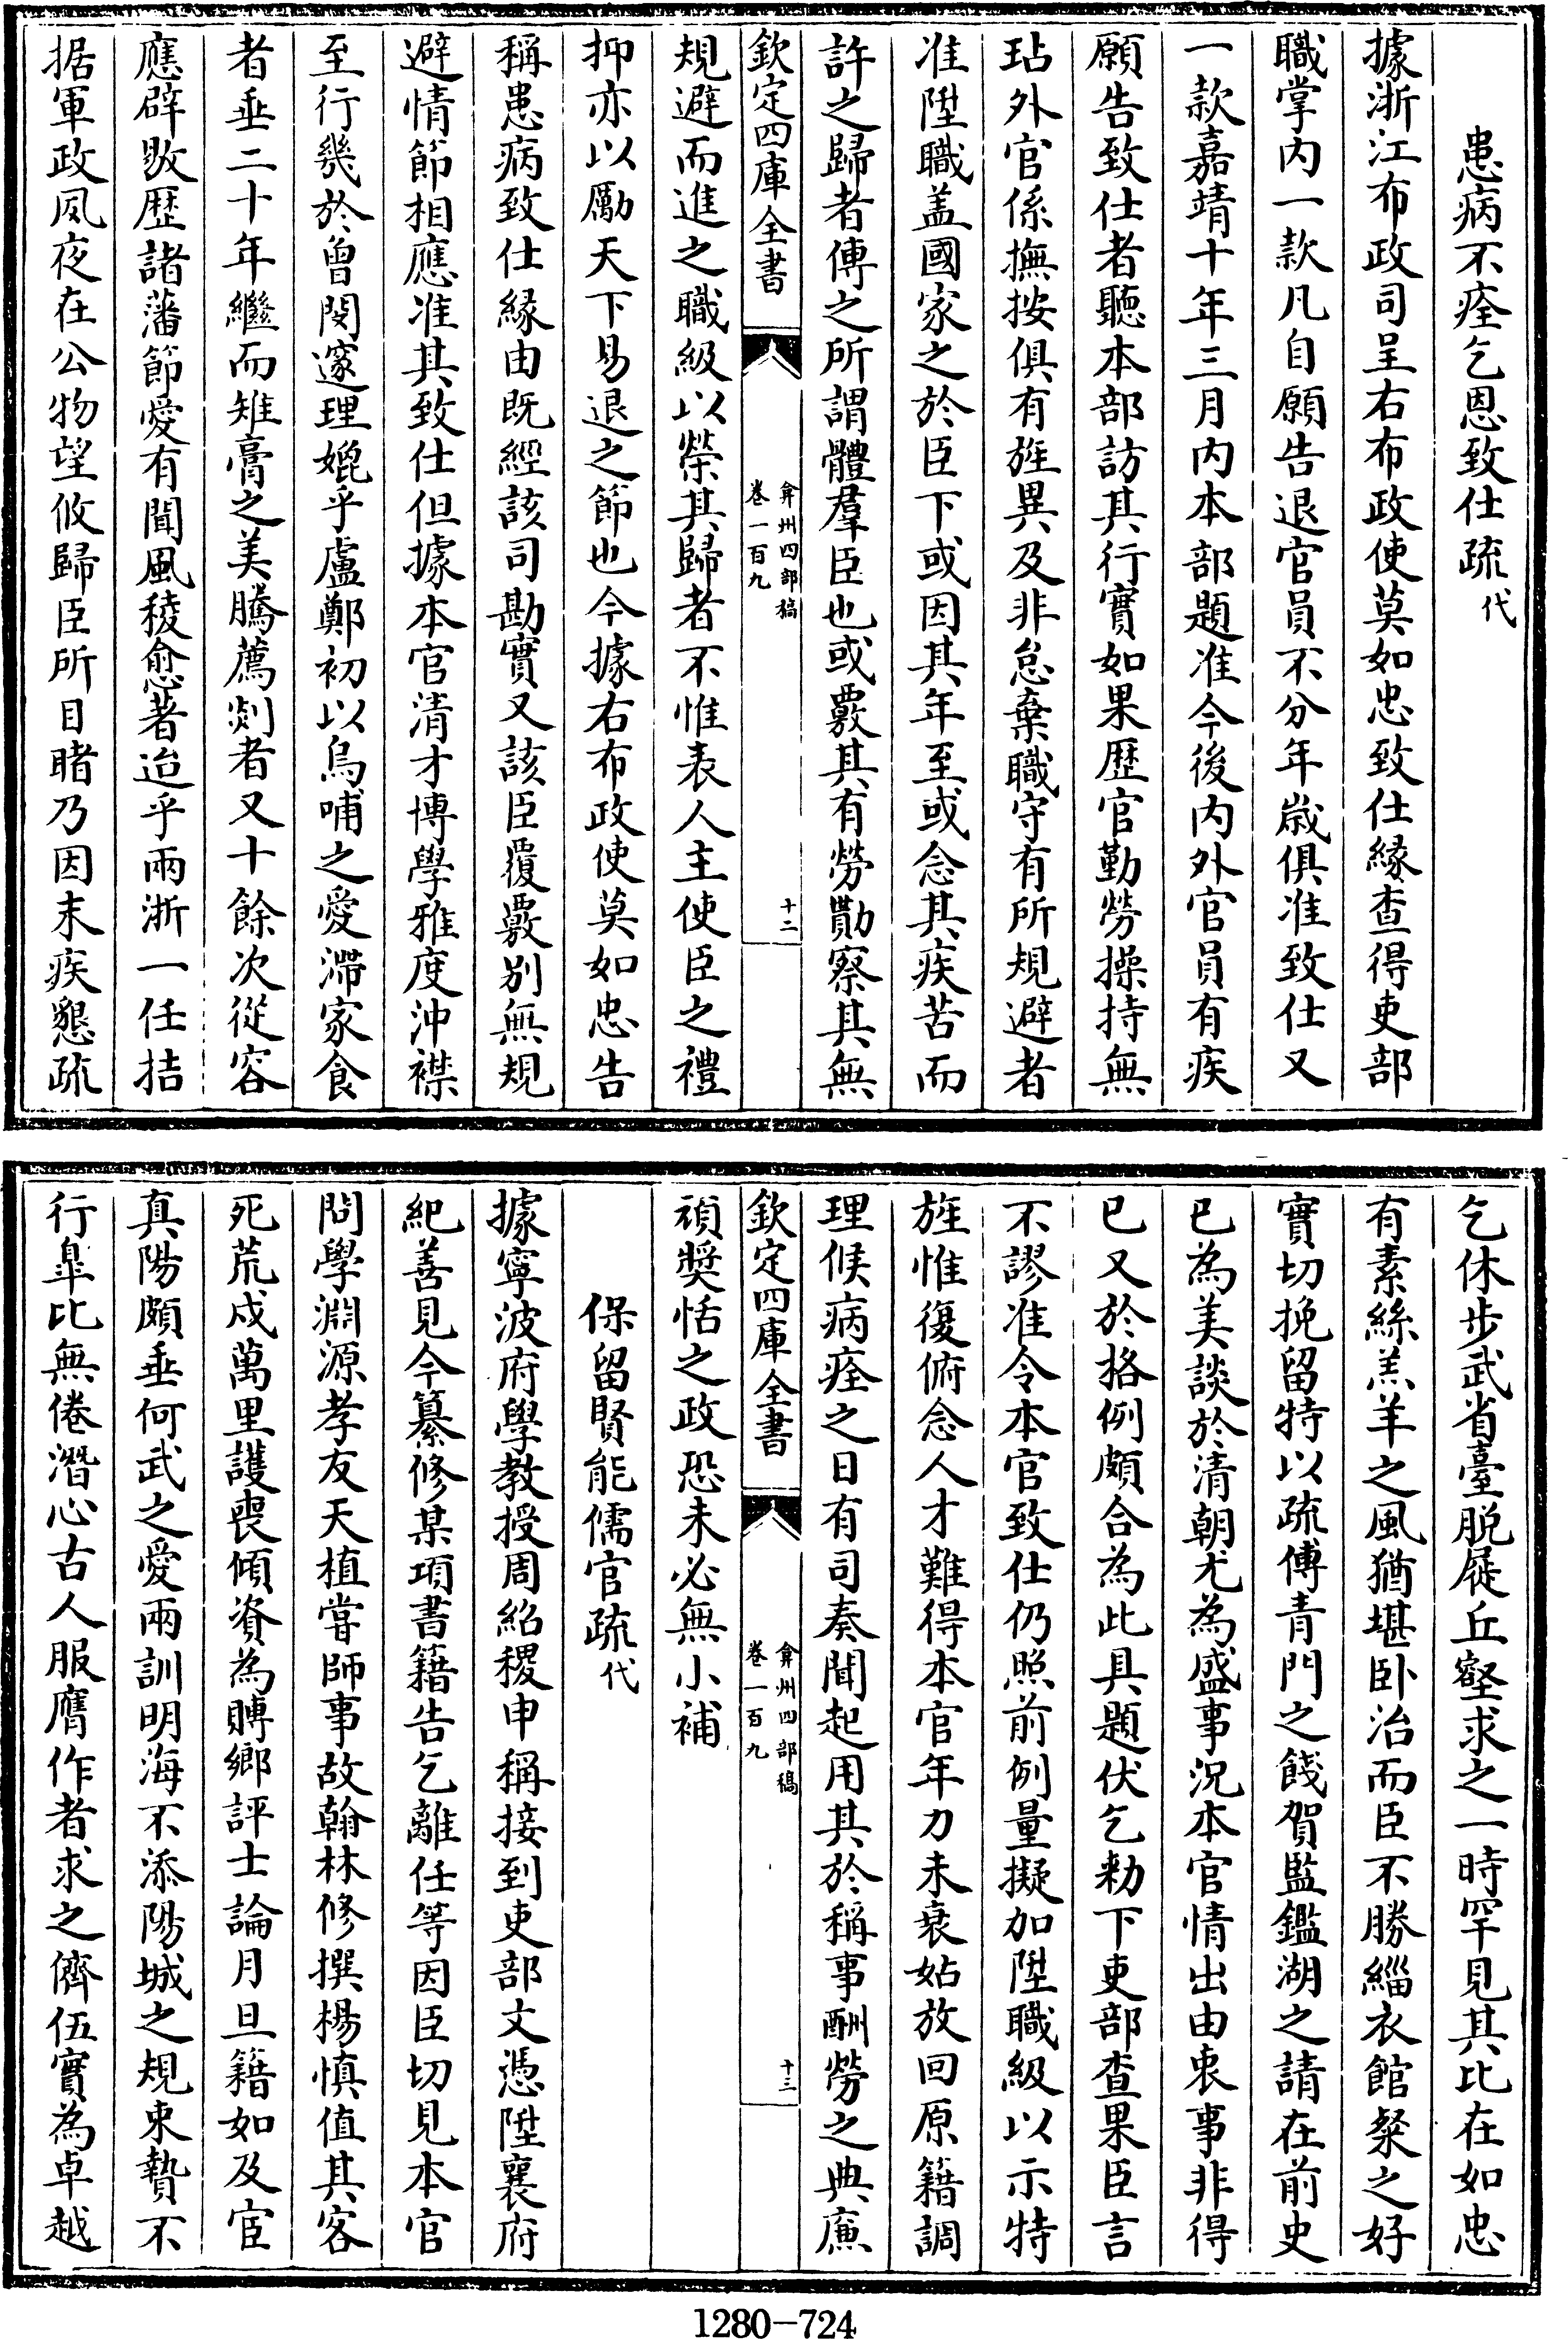 患病不痊乞恩致仕疏代
據浙江布政司呈右布政使莫如忠致仕緣查得吏部
職掌内一款凡自願告退官員不分年嵗俱准致仕又
一款嘉靖十年三月内本部題准今後内外官員有疾
願告致仕者聽本部訪其行實如果歴官勤勞操持無
玷外官係撫按俱有旌異及非怠棄職守有所規避者
准陞職盖國家之於臣下或因其年至或念其疾苦而
許之歸者傳之所謂體羣臣也或覈其有勞勩察其無
欽定四庫全書
弇州四部稿
卷一百九
十二
規避而進之職級以榮其歸者不惟表人主使臣之禮
抑亦以勵天下易退之節也今據右布政使莫如忠告
稱患病致仕緣由既經該司勘實又該臣覆覈别無規
避情節相應准其致仕但據本官清才博學雅度沖襟
至行幾於曾閔邃理媲乎盧鄭初以烏哺之愛滯家食
者垂二十年繼而雉膏之美騰薦剡者又十餘次從容
應辟敭歴諸藩節愛有聞風稜愈著迨乎兩浙一任拮
据軍政夙夜在公物望攸歸臣所目睹乃因末疾懇疏
乞休步武省臺脱屣丘壑求之一時罕見其比在如忠
有素絲羔羊之風猶堪卧治而臣不勝緇衣館粲之好
實切挽留特以疏傅青門之餞賀監鑑湖之請在前史
已為美談於清朝尤為盛事況本官情出由衷事非得
已又於格例頗合為此具題伏乞勑下吏部查果臣言
不謬准令本官致仕仍照前例量擬加陞職級以示特
旌惟復俯念人才難得本官年力未衰姑放回原籍調
理候病痊之日有司奏聞起用其於稱事酬勞之典廉
欽定四庫全書
弇州四部稿
卷一百九
十三
頑奬恬之政恐未必無小補
保留賢能儒官疏代
據寧波府學教授周紹稷申稱接到吏部文憑陞襄府
紀善見今纂修某項書籍告乞離任等因臣切見本官
問學淵源孝友天植嘗師事故翰林修撰楊慎值其客
死荒戍萬里護喪傾資為賻鄉評士論月旦籍如及宦
真陽頗垂何武之愛兩訓明海不添陽城之規束贄不
行臯比無倦潛心古人服膺作者求之儕伍實為卓越
1280-724